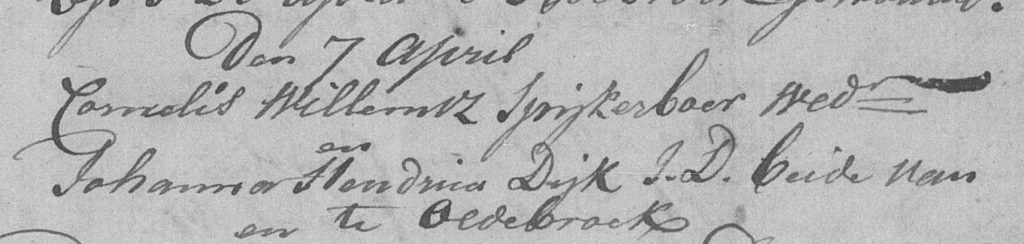 Den 7 April
Cornelis Willemsz Spijkerboer Wedr
en
Johanna Hendrica Dijk J. D. beide van
en te Oldebroek